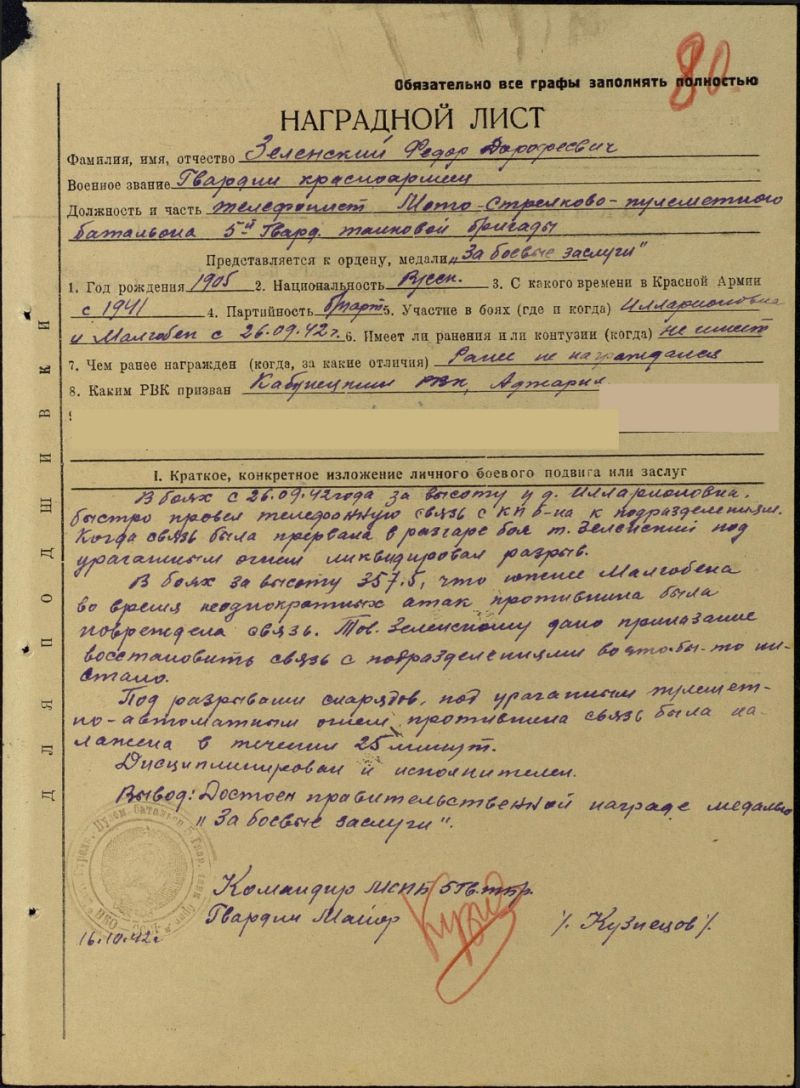 80.
Обязательно все графы заполнять полностью
НАГРАДНОЙ ЛИСТ
Фамилия, имя, отчество Зеленский Федор Дорофеевич
Военное звание Гвардии красноармеец
Должность и часть телефонист Мото-Стрелково-пулеметного
батальона 5й Гвард. танковой бригады
Представляется к ордену, медали „За боевые заслуги"
1. Год рождения 1905 2. Национальность Русск. 3. С какого времени в Красной Армии
с 1941 4. Партийность б/парт 5. Участие в боях (где и когда) Илларионовна
и Малгобек с 26.09.42г. 6. Имеет ли ранения и или контузии (когда) не имеет
7. Чем ранее награжден (когда, за какие отличия) Ранее не награждался
8. Каким РВК призван Кабулецким РВК, Аджария
I. Краткое, конкретное изложение личного боевого подвига или заслуг
В боях с 26.09.42 года за высоту у д. Илларионовна.
быстро провел телефонную связь с КП б-на к подразделениям.
Когда связь была прервана в разгаре боя т. Зеленский под
ураганным огнем ликвидировал разрыв.
В боях за высоту 357.5, что южнее Малгобека
во время неоднократных атак противника была
повреждена связь. Тов. Зеленскому дано приказание
восстановить связь с подразделениями во что-бы-то ни-
стало.
Под разрывами снарядов, под ураганным пулемет-
но-автоматным огнем противника связь была на-
лажена в течении 25 минут.
Дисциплинирован и исполнителен.
Вывод: Достоен правительственной награде медалью
„За боевые заслуги".
Командир МСПБ 5 Гв. тбр.
Гвардии Майор /. Кузнецов/.
16.10.42г
ДЛЯ ПОДШИВКИ